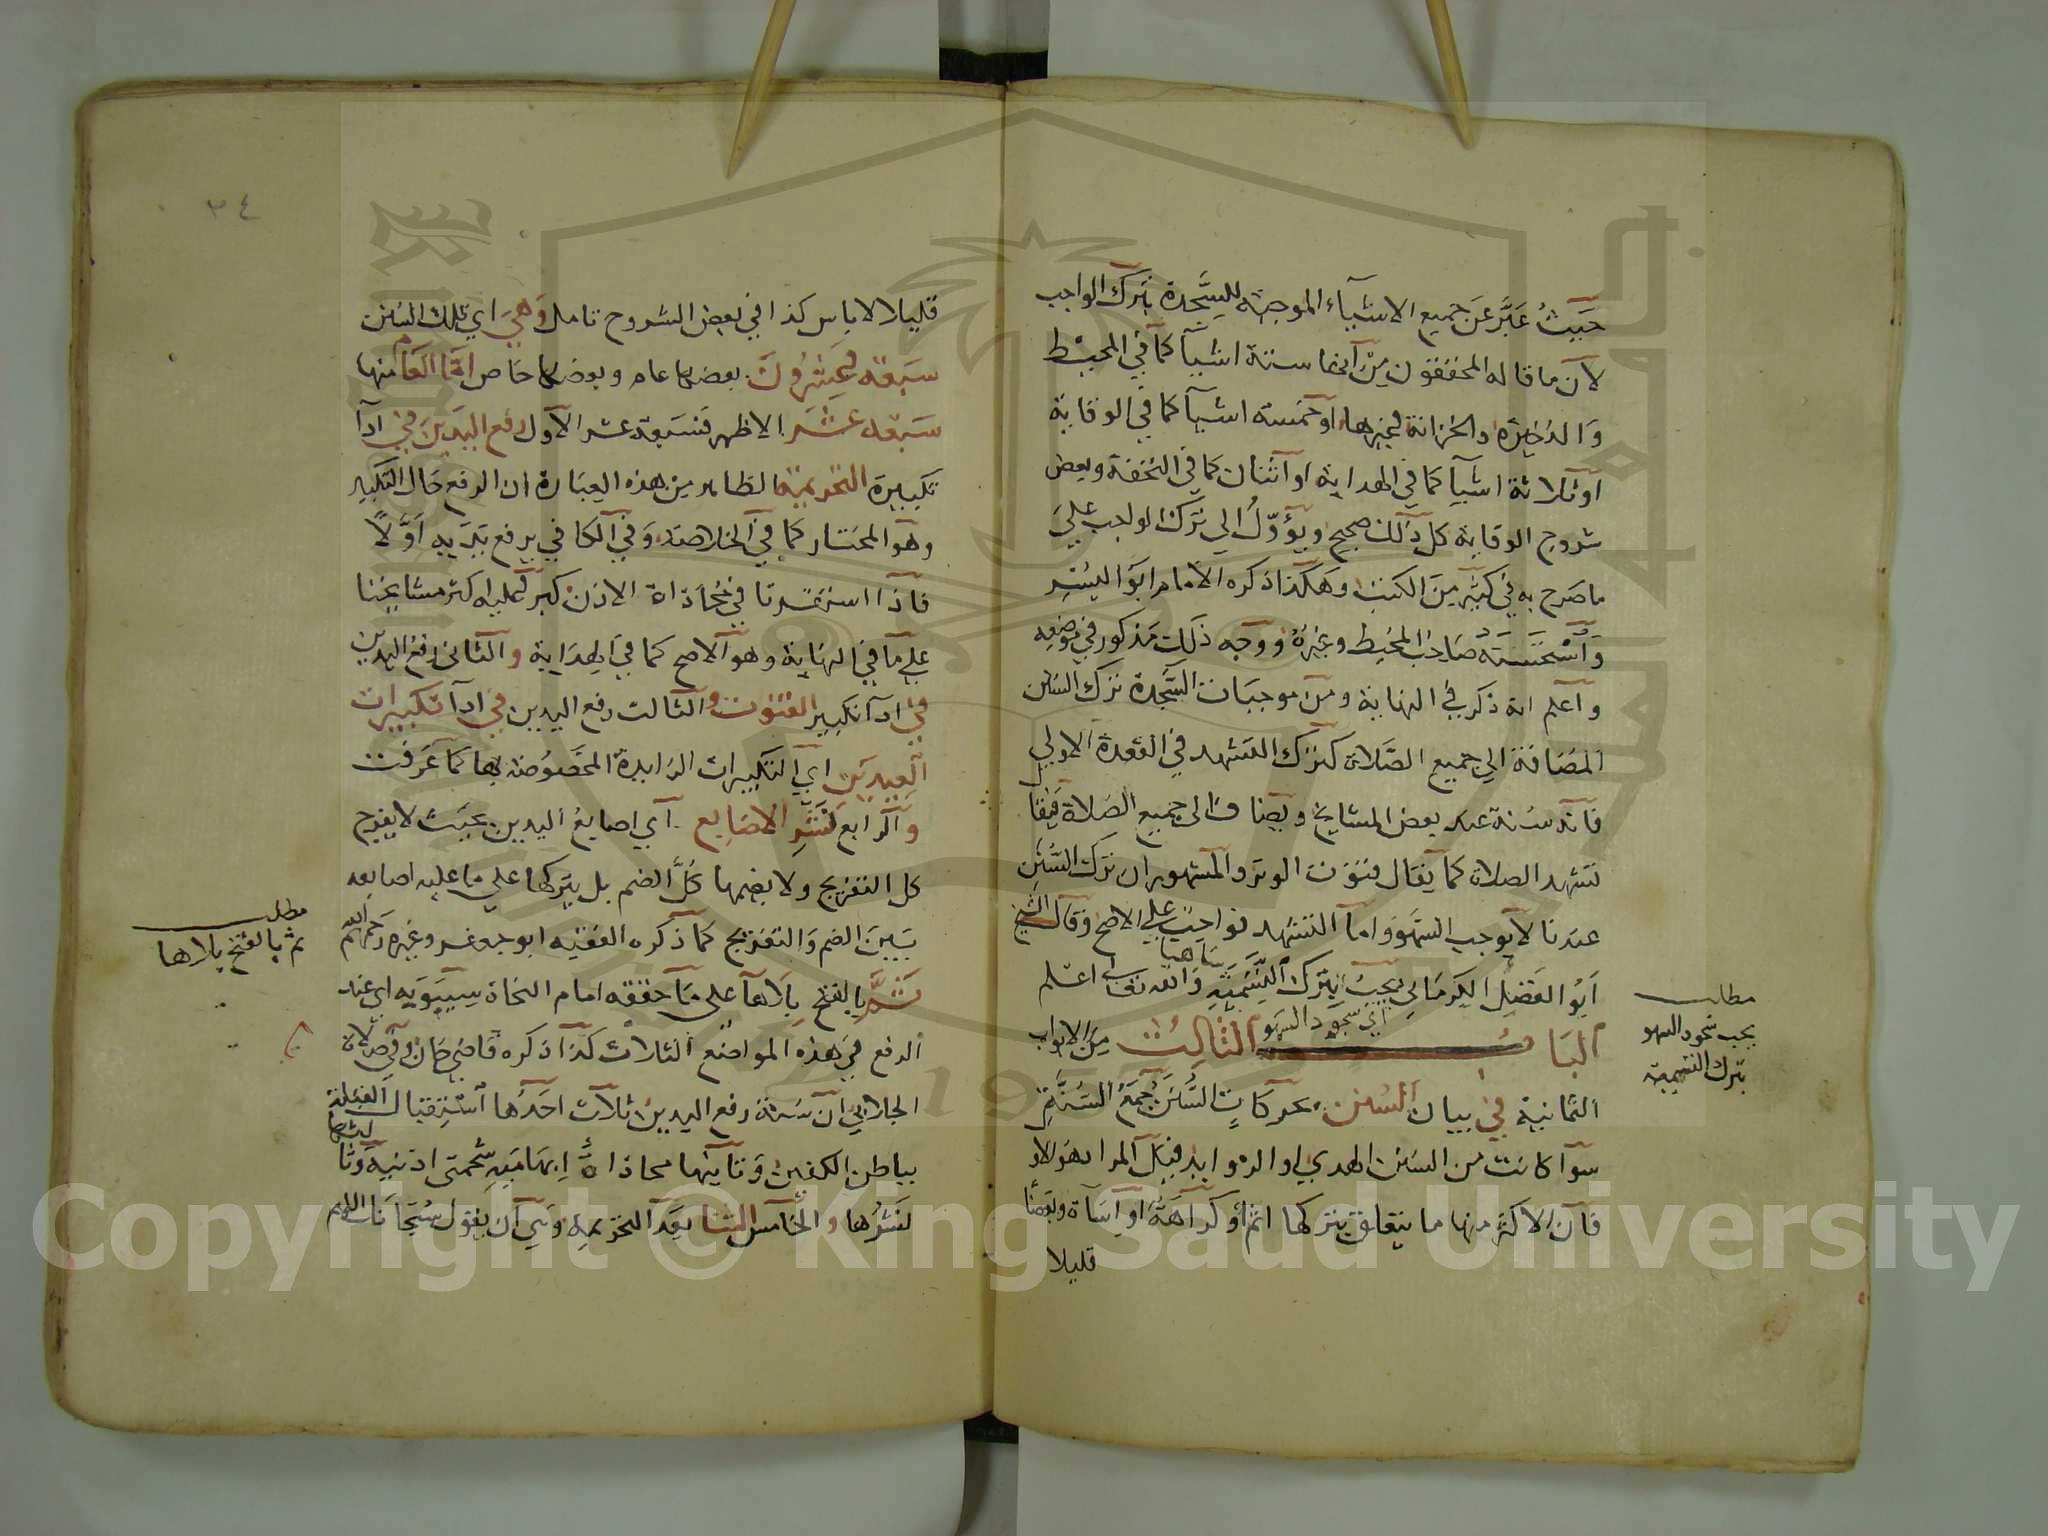 حَيثُ عَبَّر عن جميع الاشيآء الموجبة للسَّجدة بترك الواجب
لان ما قاله المحققون من انها ستة اشيآ كما في المحيط
والذخيرة والخزانة وغيرها او خمسة اشيآ كما في الوقاية
او ثلاثة اشيآ كما في الهداية او اثنان كما في التحفة وبعض
شروح الوقاية كل ذلك صحيح ويؤوّل الى ترك الواجب على
ما صرح به في كثير من الكتب وهكذا ذكره الامام ابو اليسر
واستحسنه صاحب المحيط وغيره ووجه ذلك مذكور في موضعه
واعلم انه ذكر في النهاية ومن موجبات السَّجدة ترك السنن
المضافة الى جميع الصَّلاة كترك التشهد في القعدة الاولى
فانه سنة عند بعض المشايخ ويضاف الى جميع الصلاة فيقا
تشهد الصلاة كما يقال قنوت الوتر والمشهور ان ترك السُّنن
عندنا لا يوجب السَّهو واما التشهد فواجب على الاصح وقال الشيخ
ابو الفضل الكرماني يجب بترك التَّسمية والله تعالى اعلم
ساهيا
اي سجود السهو
الباب الثالث من الابواب
الثمانية في بيان السنن بحركات السُّنن جمع السنة
سوآ كانت من السنن الهدي او الزوايد قيل المراد هو الاو
فان الاكثر منها ما يتعلق بتركها اثم او كراهة او اسآة وبعضا
قليلا
مطلب
يجب سجود السهو
بترك التسمية
٣٤
قليلا لا باس كذا في بعض الشروح تامل وهي اي تلك السنن
سبعة وعشرون بعضها عام وبعضها خاص امّا العام منها
سبعة عشر الاظهر فسبعة عشر الاول رفع اليدين في ادآ
تكبيرة التحريمة الظاهر من هذه العبارة ان الرفع حال التكبير
وهو المختار كما في الخلاصة وفي الكافي يرفع يديه اوَّلاً
فاذا استقرتا في محاذاة الاذن كبر وعليه اكثر مشايخنا
على ما في النهاية وهو الاصح كما في الهداية والثاني رفع اليدين
في ادآ تكبير القنوت والثالث رفع اليدين في ادآ تكبيرات
العيدين اي التكبيرات الزايدة المخصوصة بها كما عرفت
والرابع نشر الاصابع اي اصابع اليدين بحيث لا يفرج
كل التفريج ولا يضمها كل الضم بل يتركها على ما عليه اصابعه
بين الضم والتفريج كما ذكره الفقيه ابو جعفر وغيره رحمهم الله
ثَمَّ بالفتح بلاها على ما حققه امام النحاة سيبويه اي عند
الرفع في هذه المواضع الثلاث كذا ذكره قاضي خان وفي صلاة
الجلابي ان سنة رفع اليدين ثلاث احدها استقبال القبلة
بباطن الكفين وثانيها محاذاة ابهاميه شحمتي اذنيه وثا
لثها
لنشرها والخامس الثنا بعد التحريمة وهي ان يقول سبحانك اللهم
مطلب
ثم بالفتح بلاها